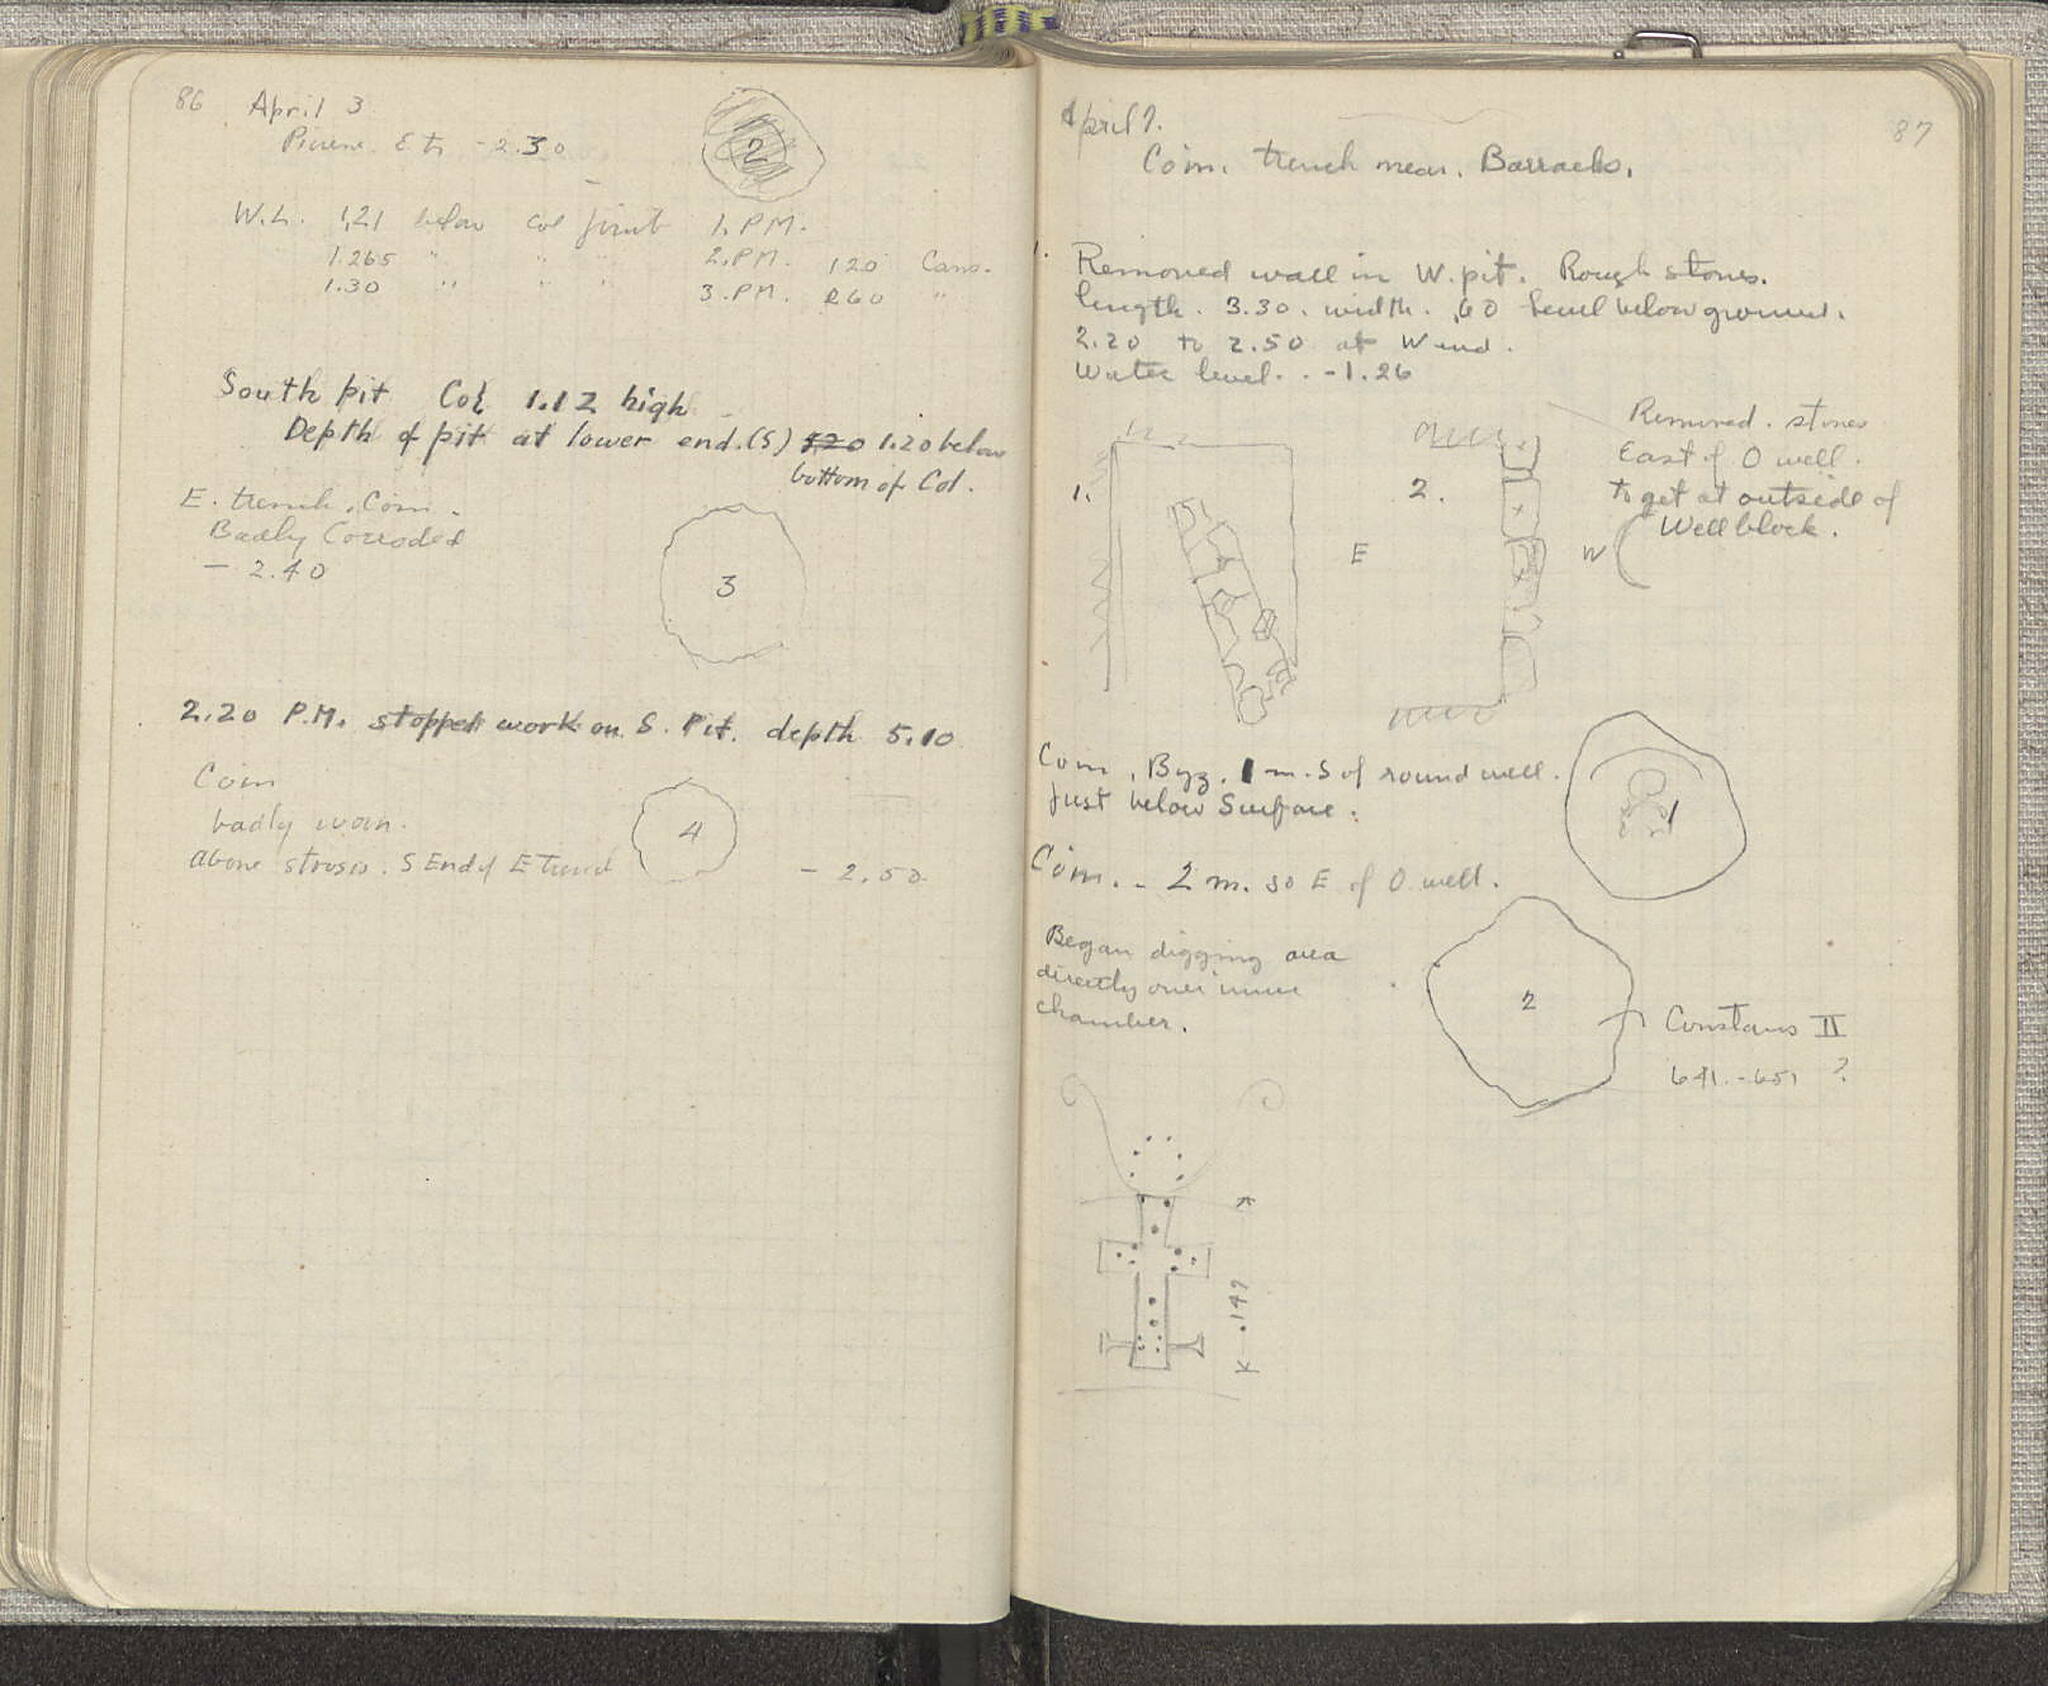 86 April 3
Pirene. E to - 2.30
2
W.L. 1.21 below col joint 1. PM.
1.265 " " " 2. PM. 120 Cans.
1.30 " " " 3. PM. 260 "
South pit Col 1.12 high
Depth of pit at lower end. (S) 1.20 1.20 below
bottom of Col.
E. trench. Coin.
Badly Corroded
- 2.40
3
2.20 P.M. stopped work on S. Pit. depth 5.10
Coin
badly worn.
above strosis. S End of E trench
4
- 2.50
April 7.
87
Coin. trench near. Barracks.
1. Removed wall in W. pit. Rough stones.
length. 3.30. width. .60 level below ground.
2.20 to 2.50 at W end.
Water level. . -1.26
Removed. stones
East of O well.
to get at outside of
Well block.
1.
E
2.
W
Coin, Byz. 1 m. S of round well.
Just below Surface.
1
Coin. - 2 m. so E of O well.
Began digging area
directly over inner
chamber.
2
Constans II
641.-651 ?
K .147